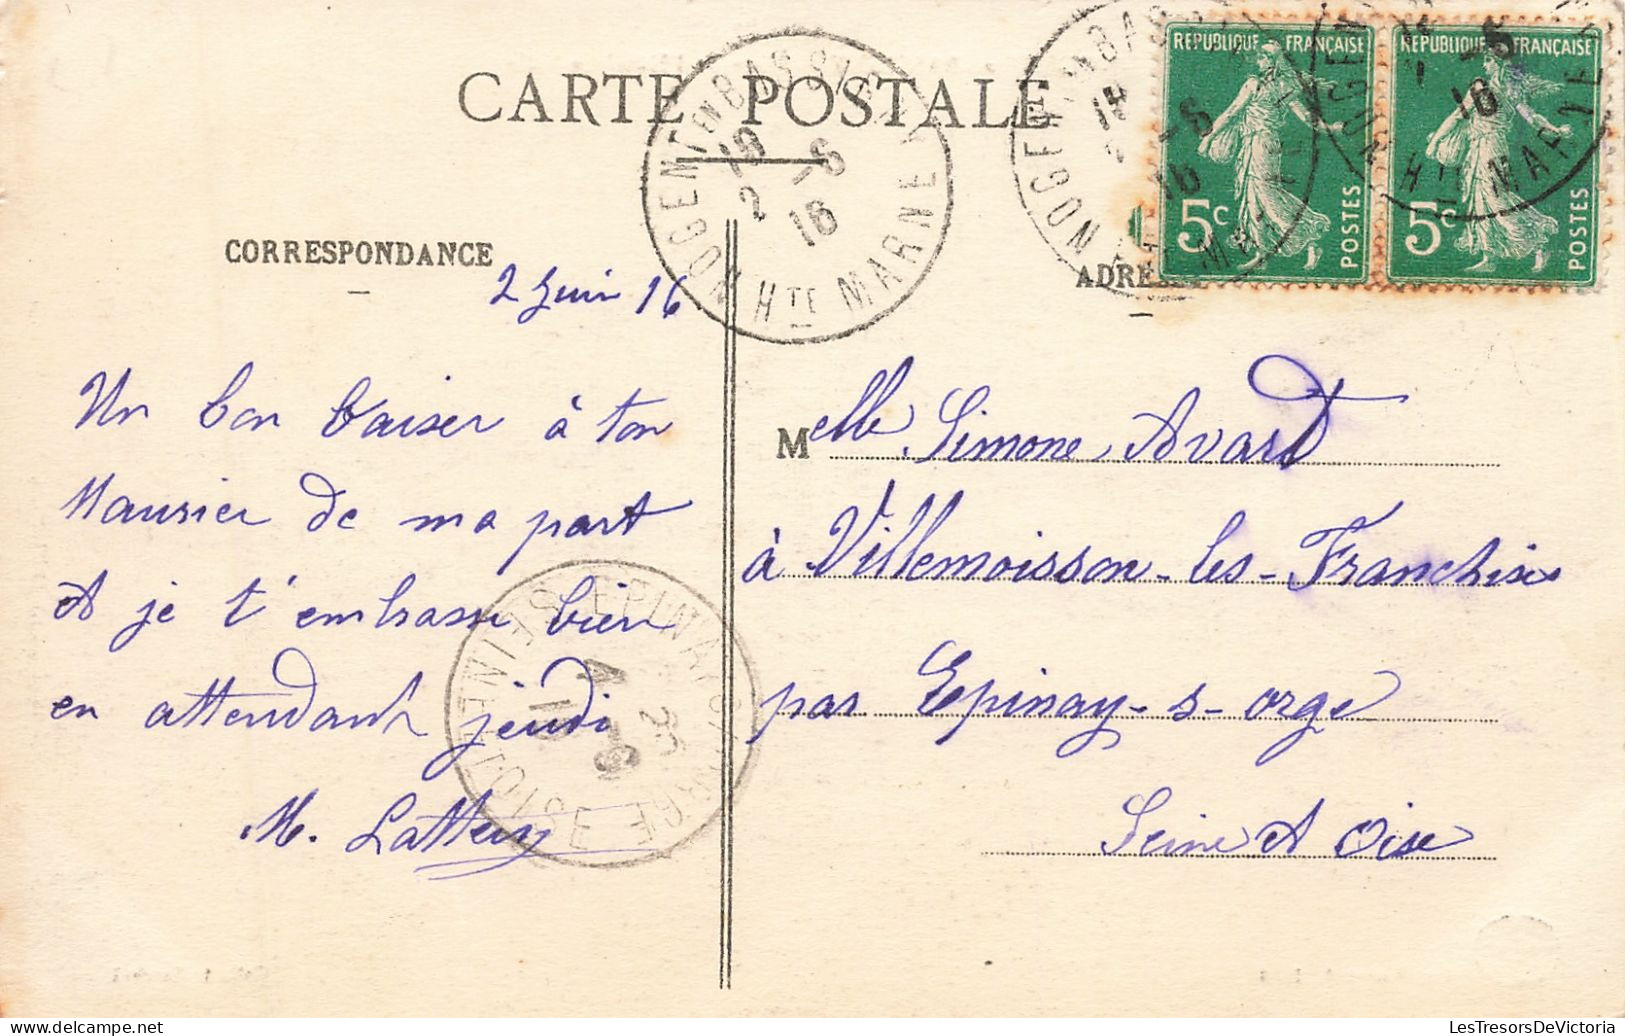 CARTE POSTALE
NOGENT EN BASSIGNY
18
2 - 6
16
HTE MARNE
REPUBLIQUE FRANÇAISE
5c
POSTES
REPUBLIQUE FRANÇAISE
5c
POSTES
CORRESPONDANCE
2 Juin 16
Un bon baiser à ton
Maurice de ma part
et je t'embrasse bien
en attendant jeudi
M.
EPINAY S/ ORGE
SEINE ET OISE
ADRESSE
Melle Simone Avard
à Villemoisson-les-Franchises
par Epinay-s-orge
Seine et Oise
LesTresorsDeVictoria